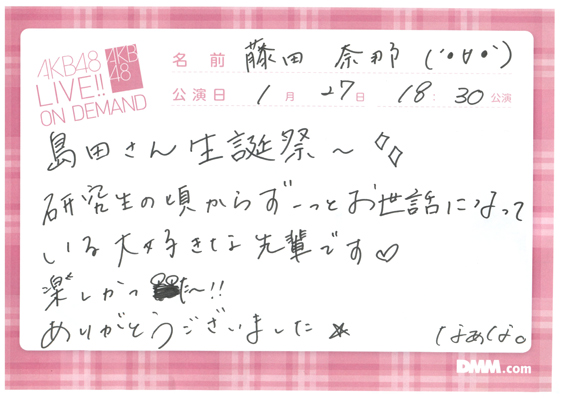 AKB48
LIVE!!
ON DEMAND
AKB
48
名前 藤田 奈那 (´•∀•`)
公演日 1月 27日 18:30公演
島田さん生誕祭〜
研究生の頃からずーっとお世話になって
いる大好きな先輩です♡
楽しかった〜!!
ありがとうございました☆
なぁな。
DMM.com